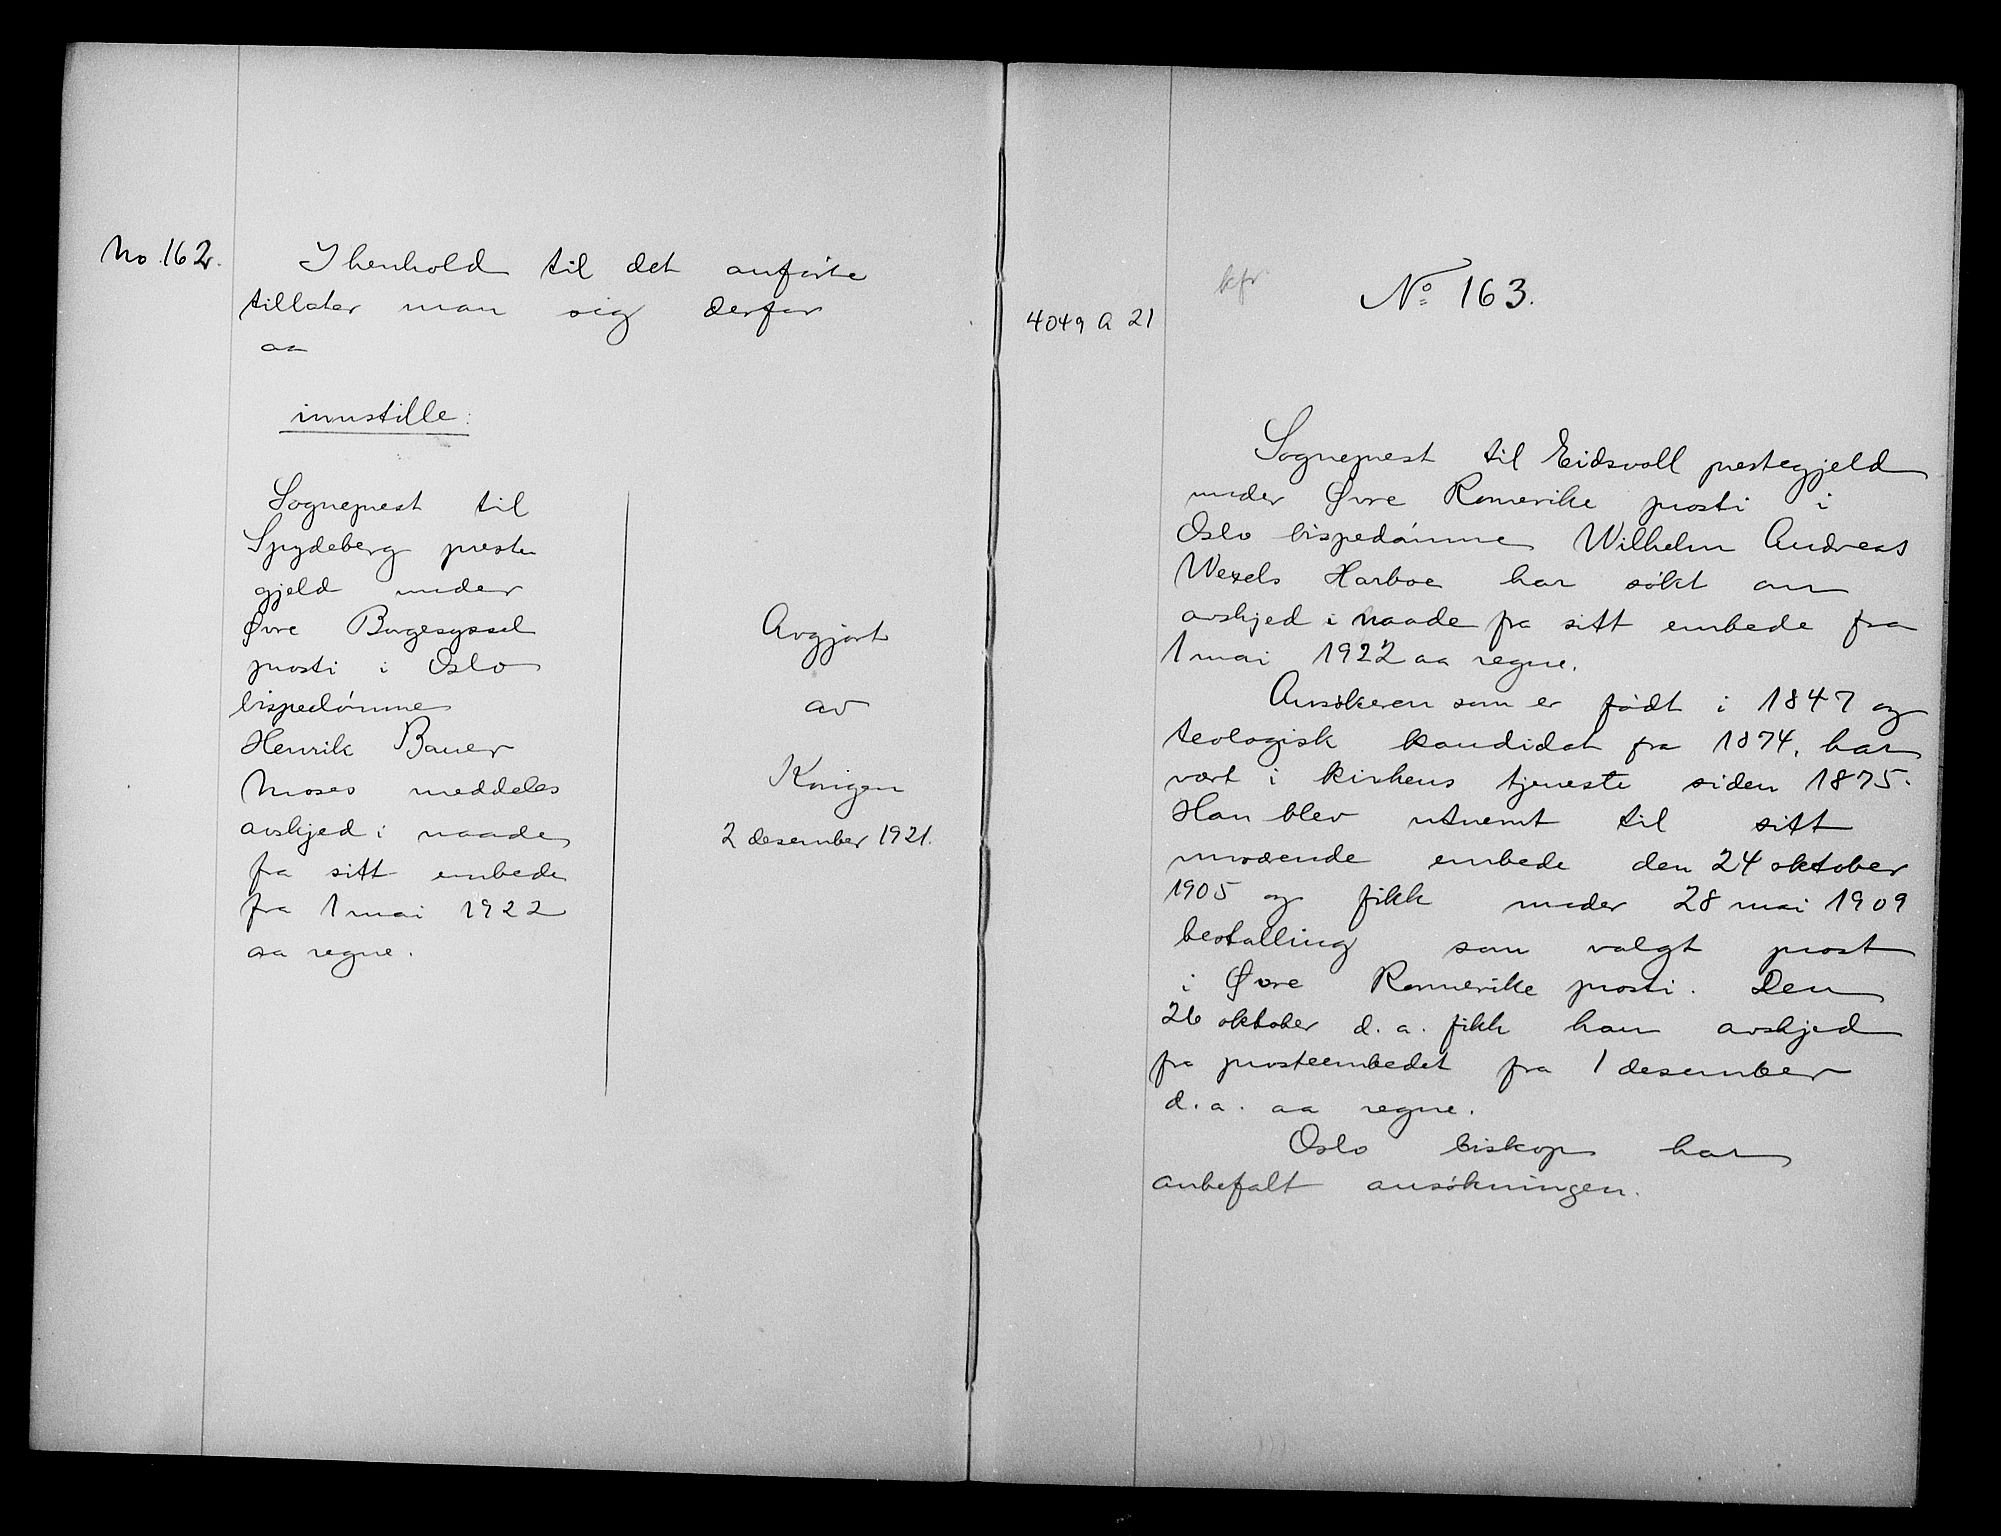 No 162.
I henhold til det anførte
tillater man sig derfor
aa
innstille:
Sogneprest til
Spydeberg preste
gjeld under
Øvre Borgesyssel
prosti i Oslo
bispedømme
Henrik Bauer
Moses meddeles
avskjed i naade
fra sitt embede
fra 1 mai 1922
aa regne.
Avgjort
av
Kongen
2 desember 1921.
kfr
No 163.
4049 A 21
Sogneprest til Eidsvoll prestegjeld
under Øvre Romerike prosti i
Oslo bispedømme Wilhelm Andreas
Wexels Harboe har søkt om
avskjed i naade fra sitt embede fra
1 mai 1922 aa regne.
Ansøkeren som er født i 1847 og
teologisk kandidat fra 1874, har
vært i kirkens tjeneste siden 1875.
Han blev utnemt til sitt
nuværende embede den 24 oktober
1905 og fikk under 28 mai 1909
bestalling som valgt prost
i Øvre Romerike prosti. Den
26 oktober d. a. fikk han avskjed
fra prosteembedet fra 1 desember
d. a. aa regne.
Oslo biskop har
anbefalt ansøkningen.